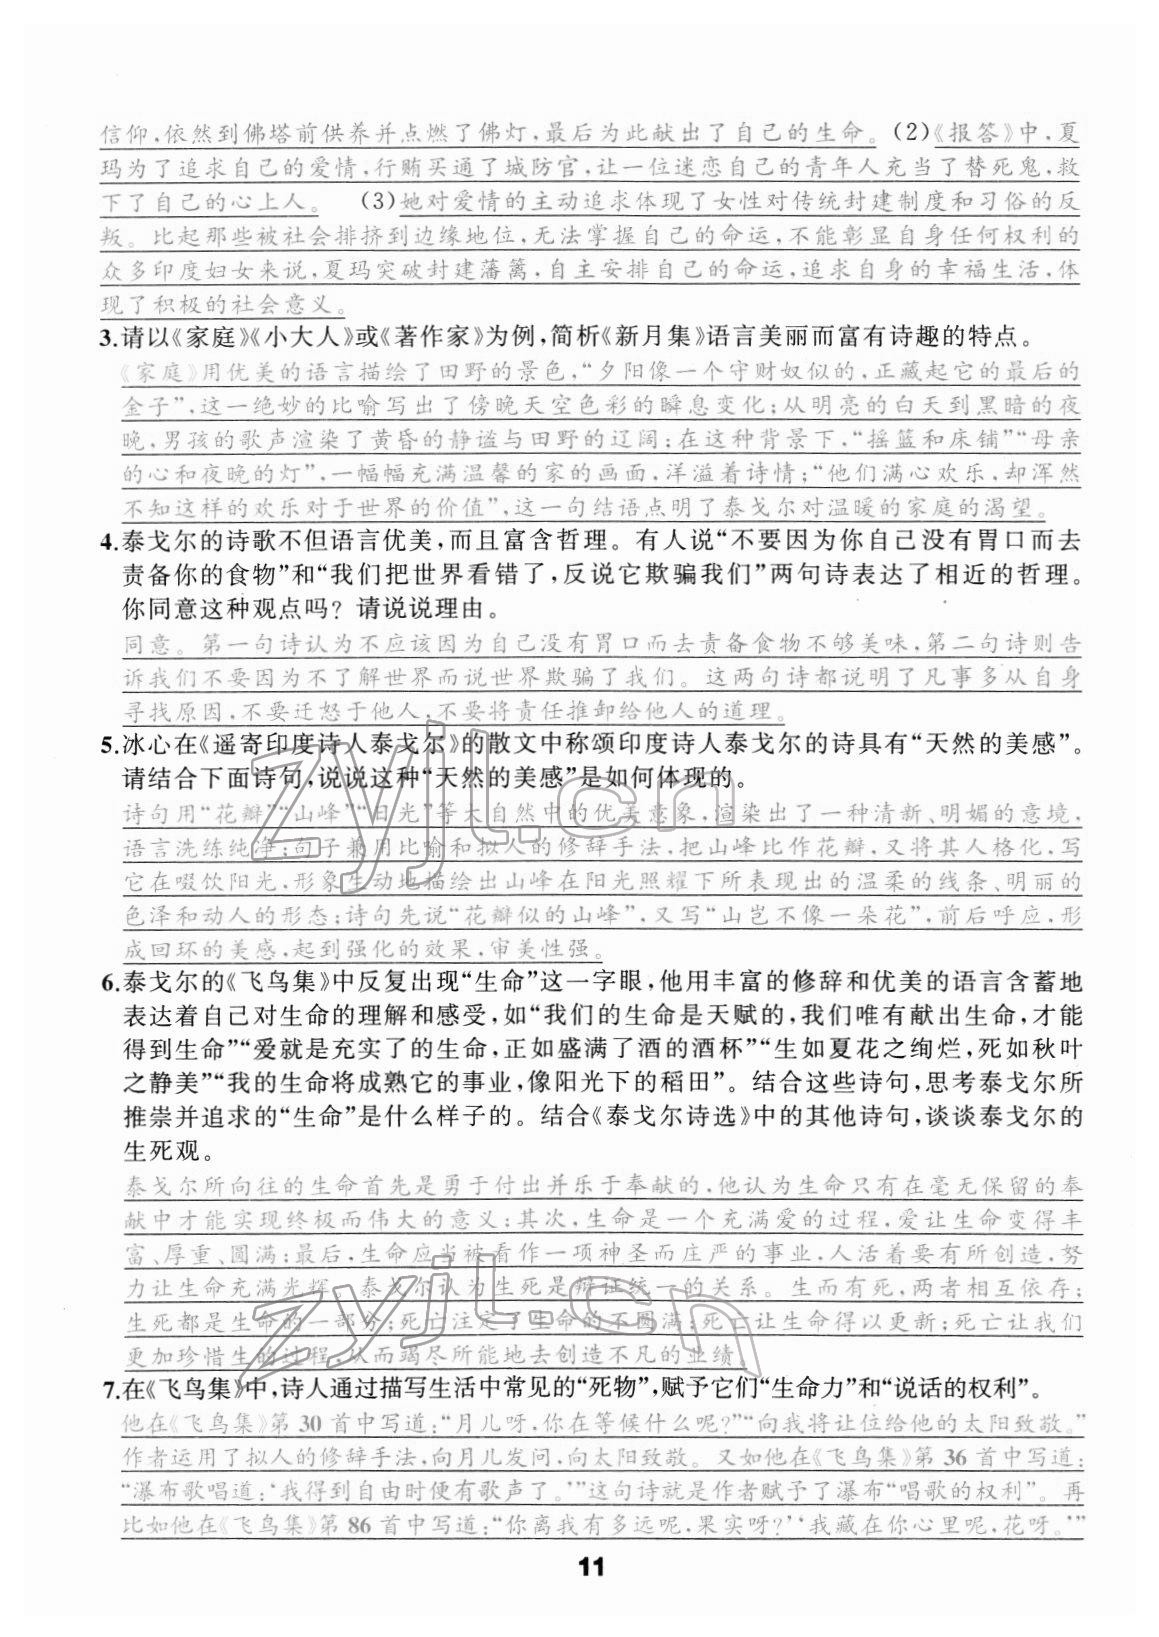 信仰,依然到佛塔前供养并点燃了佛灯,最后为此献出了自己的生命。(2)《报答》中,夏
玛为了追求自己的爱情,行贿买通了城防官,让一位迷恋自己的青年人充当了替死鬼,救
下了自己的心上人。 (3)她对爱情的主动追求体现了女性对传统封建制度和习俗的反
叛。比起那些被社会排挤到边缘地位,无法掌握自己的命运,不能彰显自身任何权利的
众多印度妇女来说,夏玛突破封建藩篱,自主安排自己的命运,追求自身的幸福生活,体
现了积极的社会意义。
3.请以《家庭》《小大人》或《著作家》为例,简析《新月集》语言美丽而富有诗趣的特点。
《家庭》用优美的语言描绘了田野的景色,“夕阳像一个守财奴似的,正藏起它的最后的
金子”,这一绝妙的比喻写出了傍晚天空色彩的瞬息变化;从明亮的白天到黑暗的夜
晚,男孩的歌声渲染了黄昏的静谧与田野的辽阔;在这种背景下,“摇篮和床铺”“母亲
的心和夜晚的灯”,一幅幅充满温馨的家的画面,洋溢着诗情;“他们满心欢乐,却浑然
不知这样的欢乐对于世界的价值”,这一句结语点明了泰戈尔对温暖的家庭的渴望。
4.泰戈尔的诗歌不但语言优美,而且富含哲理。有人说“不要因为你自己没有胃口而去
责备你的食物”和“我们把世界看错了,反说它欺骗我们”两句诗表达了相近的哲理。
你同意这种观点吗?请说说理由。
同意。第一句诗认为不应该因为自己没有胃口而去责备食物不够美味,第二句诗则告
诉我们不要因为不了解世界而说世界欺骗了我们。这两句诗都说明了凡事多从自身
寻找原因,不要迁怒于他人,不要将责任推卸给他人的道理。
5.冰心在《遥寄印度诗人泰戈尔》的散文中称颂印度诗人泰戈尔的诗具有“天然的美感”。
请结合下面诗句,说说这种“天然的美感”是如何体现的。
诗句用“花瓣”“山峰”“日光”等大自然中的优美意象,渲染出了一种清新、明媚的意境,
语言洗练纯净;句子兼用比喻和拟人的修辞手法,把山峰比作花瓣,又将其人格化,写
它在啜饮阳光,形象生动地描绘出山峰在阳光照耀下所表现出的温柔的线条、明丽的
色泽和动人的形态;诗句先说“花瓣似的山峰”,又写“山岂不像一朵花”,前后呼应,形
成回环的美感,起到强化的效果,审美性强。
6.泰戈尔的《飞鸟集》中反复出现“生命”这一字眼,他用丰富的修辞和优美的语言含蓄地
表达着自己对生命的理解和感受,如“我们的生命是天赋的,我们唯有献出生命,才能
得到生命”“爱就是充实了的生命,正如盛满了酒的酒杯”“生如夏花之绚烂,死如秋叶
之静美”“我的生命将成熟它的事业,像阳光下的稻田”。结合这些诗句,思考泰戈尔所
推崇并追求的“生命”是什么样子的。结合《泰戈尔诗选》中的其他诗句,谈谈泰戈尔的
生死观。
泰戈尔所向往的生命首先是勇于付出并乐于奉献的,他认为生命只有在毫无保留的奉
献中才能实现终极而伟大的意义;其次,生命是一个充满爱的过程,爱让生命变得丰
富、厚重、圆满;最后,生命应当被看作一项神圣而庄严的事业,人活着要有所创造,努
力让生命充满光辉。泰戈尔认为生死是辩证统一的关系。生而有死,两者相互依存;
生死都是生命的一部分;死亡注定了生命的不圆满;死亡让生命得以更新;死亡让我们
更加珍惜生的过程,从而竭尽所能地去创造不凡的业绩。
7.在《飞鸟集》中,诗人通过描写生活中常见的“死物”,赋予它们“生命力”和“说话的权利”。
他在《飞鸟集》第 30 首中写道:“月儿呀,你在等候什么呢?”“向我将让位给他的太阳致敬。”
作者运用了拟人的修辞手法,向月儿发问,向太阳致敬。又如他在《飞鸟集》第 36 首中写道:
“瀑布歌唱道:‘我得到自由时便有歌声了。’”这句诗就是作者赋予了瀑布“唱歌的权利”。再
比如他在《飞鸟集》第 86 首中写道:“‘你离我有多远呢,果实呀?’‘我藏在你心里呢,花呀。’”
11
zyjl.cn
zyjl.cn